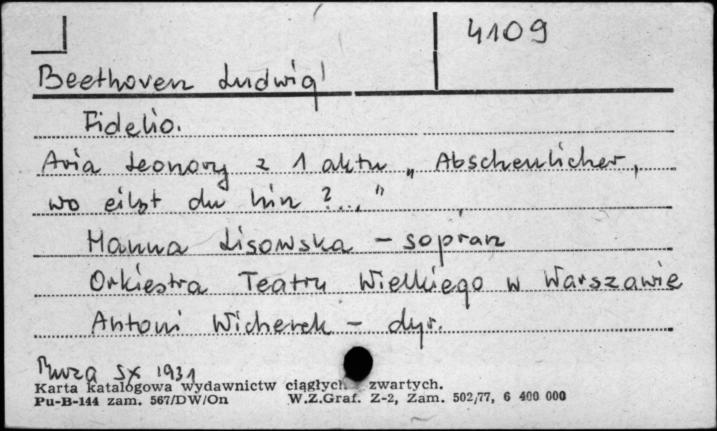 4109
Beethoven Ludwig
Fidelio.
Aria Leonory z 1 aktu „Abscheulicher,
wo eilst du hin?..."
Hanna Lisowska – sopran
Orkiestra Teatru Wielkiego w Warszawie
Antoni Wicherek – dyr.
Muza SX 1931
Karta katalogowa wydawnictw ciągłych zwartych.
Pu-B-144 zam. 567/DW/On W.Z.Graf. Z-2, Zam. 502/77, 6 400 000